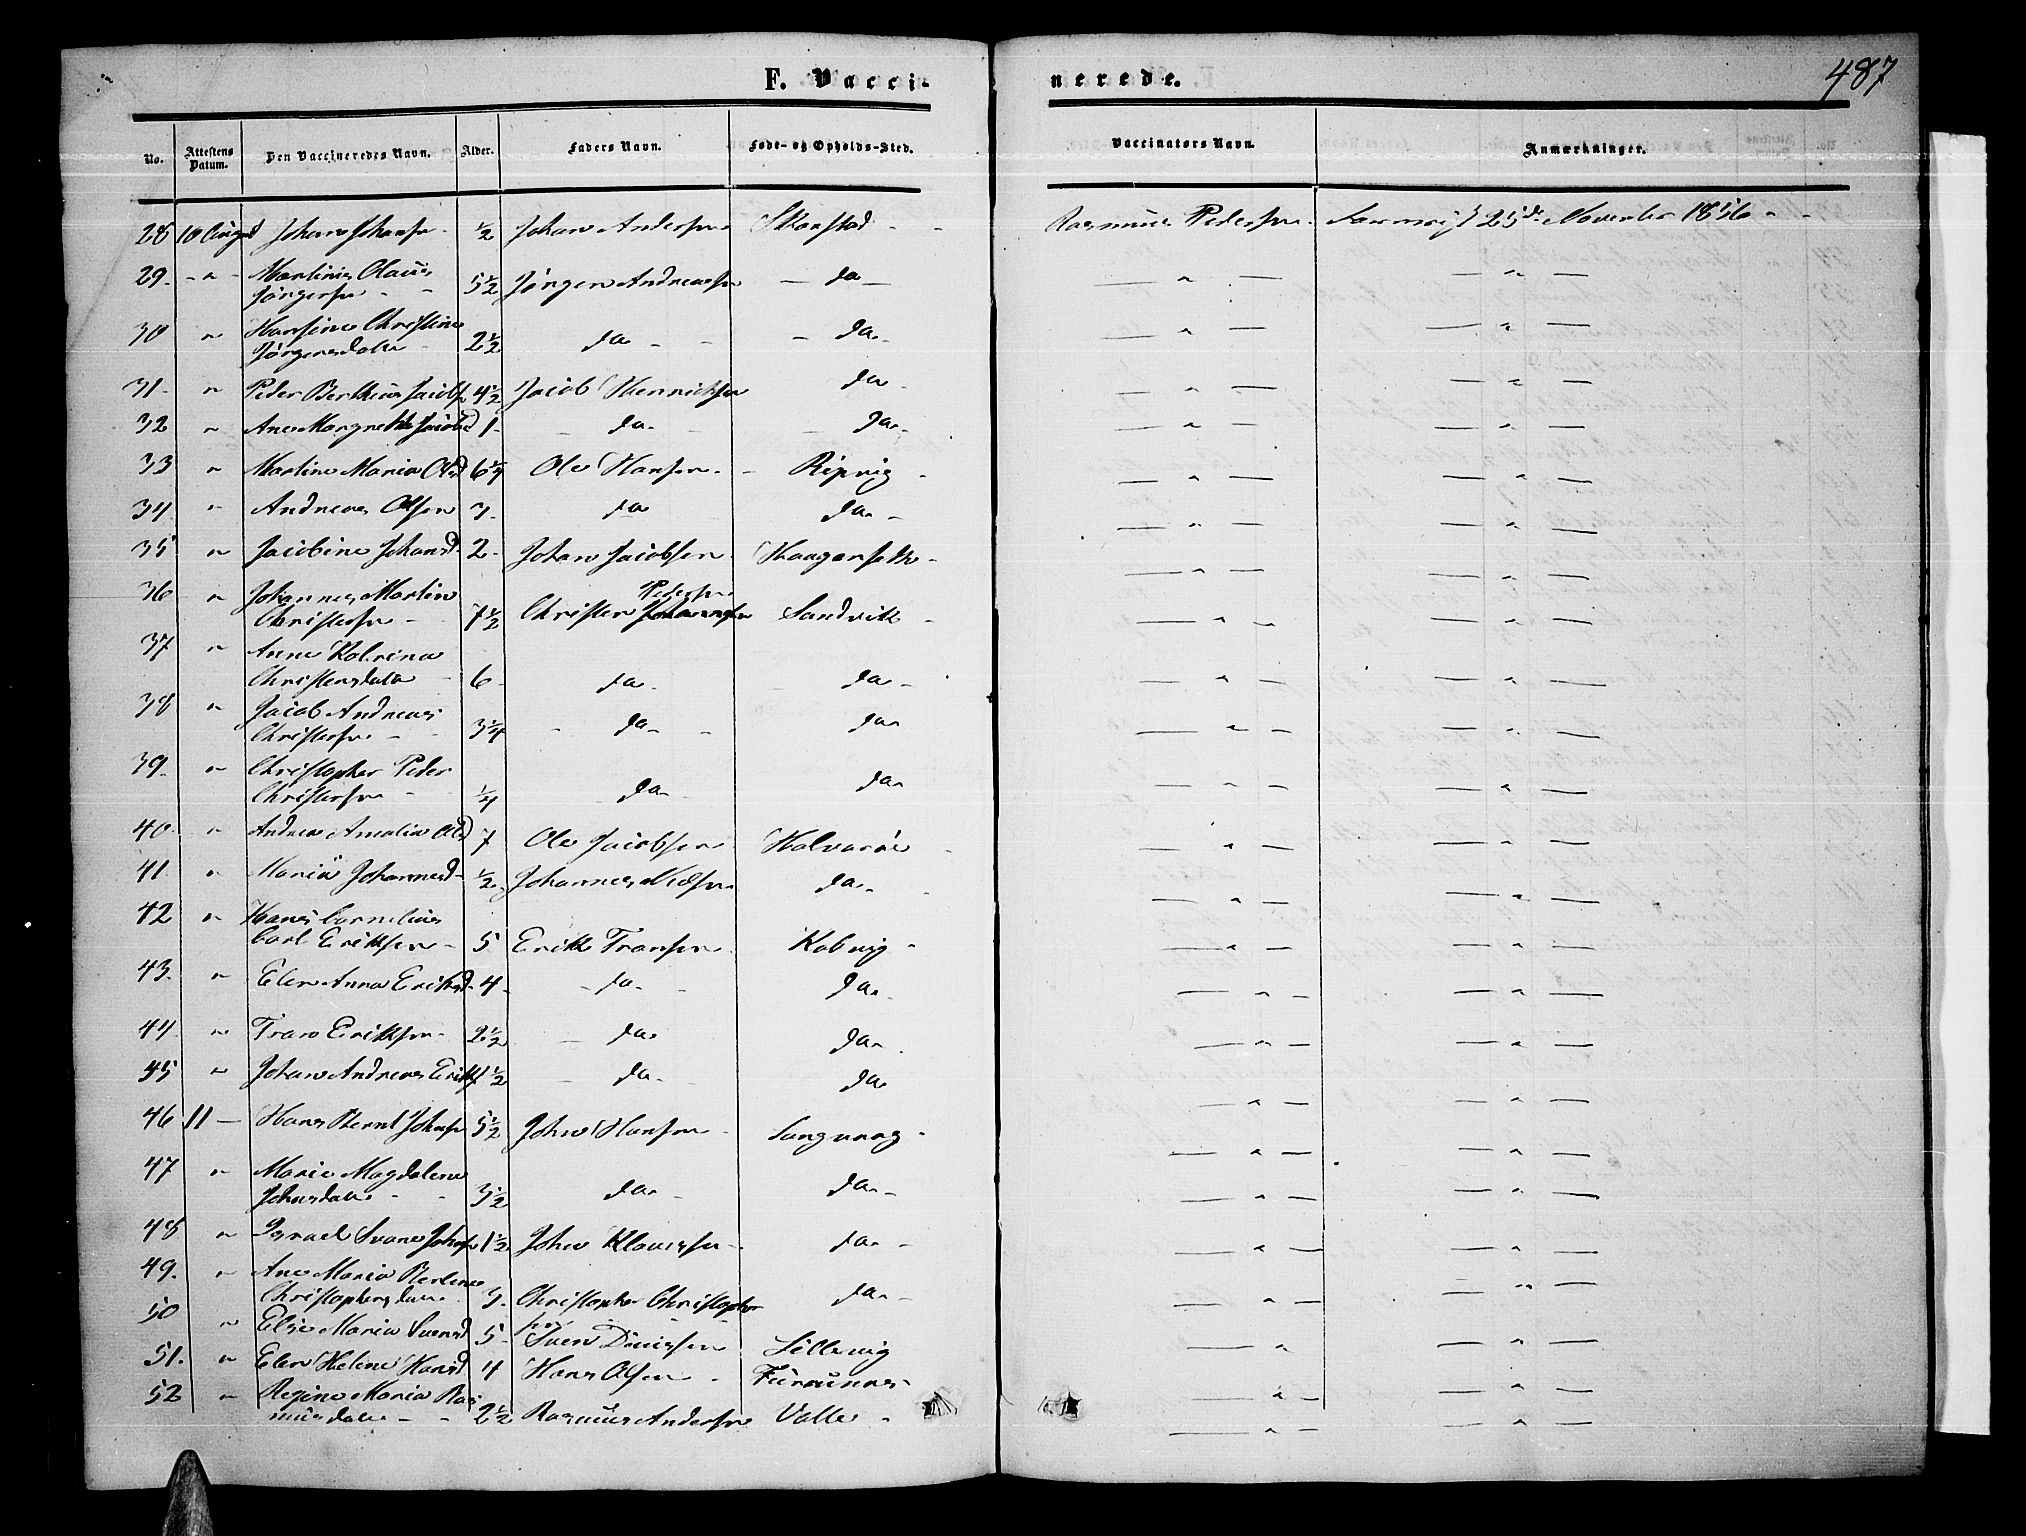 487
F. Vaccinerede.
No. Attestens Datum. Den Vaccineredes Navn. Alder. Faders Navn. Føde- og Opholds-Sted. Vaccinators Navn. Anmærkninger.
28 10 August Johan Johansen ½ Johan Andersen Skarstad Rasmus Pedersen 25de November 1856
29. " Martinus Olaus
Jørgensen 5½ Jørgen Andreassen do " "
30 " Hansine Christine
Jørgensdatter 2½ do do " "
31. " Peder Jacobsn 4½ Jacob Henrichsen do " "
32 " Ane Margrethe Jacobsd 1 do do " "
33 " Martine Maria Olsd 6¼ Ole Hansen " "
34 " Andreas Olsen 3 do do " "
35 " Jacobine Johansd 2 Johan Jacobsen " "
36 " Johannes Martin
Christensen 7½ Christen Pedersen Sandvik " "
37 " Anne Katrina
Christensdatter 6 do do " "
38 " Jacob Andreas
Christensen 3¼ do do " "
39. " Christopher Peder
Christensen ¼ do do " "
40. " Andrea Amalia Olsd 7 Ole Jacobsen Halvarøe " "
41 " Maria Johannesd ½ Johannes Nielsen do " "
42 " Hans Cornelius
Carl Eriksen 5 Erik Transen Kobvig " "
43. " Elen Anna Eriksd 4 do do " "
44 " Tran Eriksen 2½ do do " "
45 " Johan Andreas Eriks ½ do do " "
46 11 Hans Bernt Johnsn 5½ John Hansen " "
47 " Marie Magdalene
Johnsdatter 3½ do do " "
48 " Israel Johnsn 1½ John Klausen do " "
49. " Ane Maria
Christophersdatter 3 Christopher Christopher
sen do " "
50 " Else Maria Svensd 5 Sven " "
51. " Elen Heline Hansd 4 Hans Olsen " "
52 " Regine Maria Ras
musdatter 2½ Rasmus Andersen Valle " "